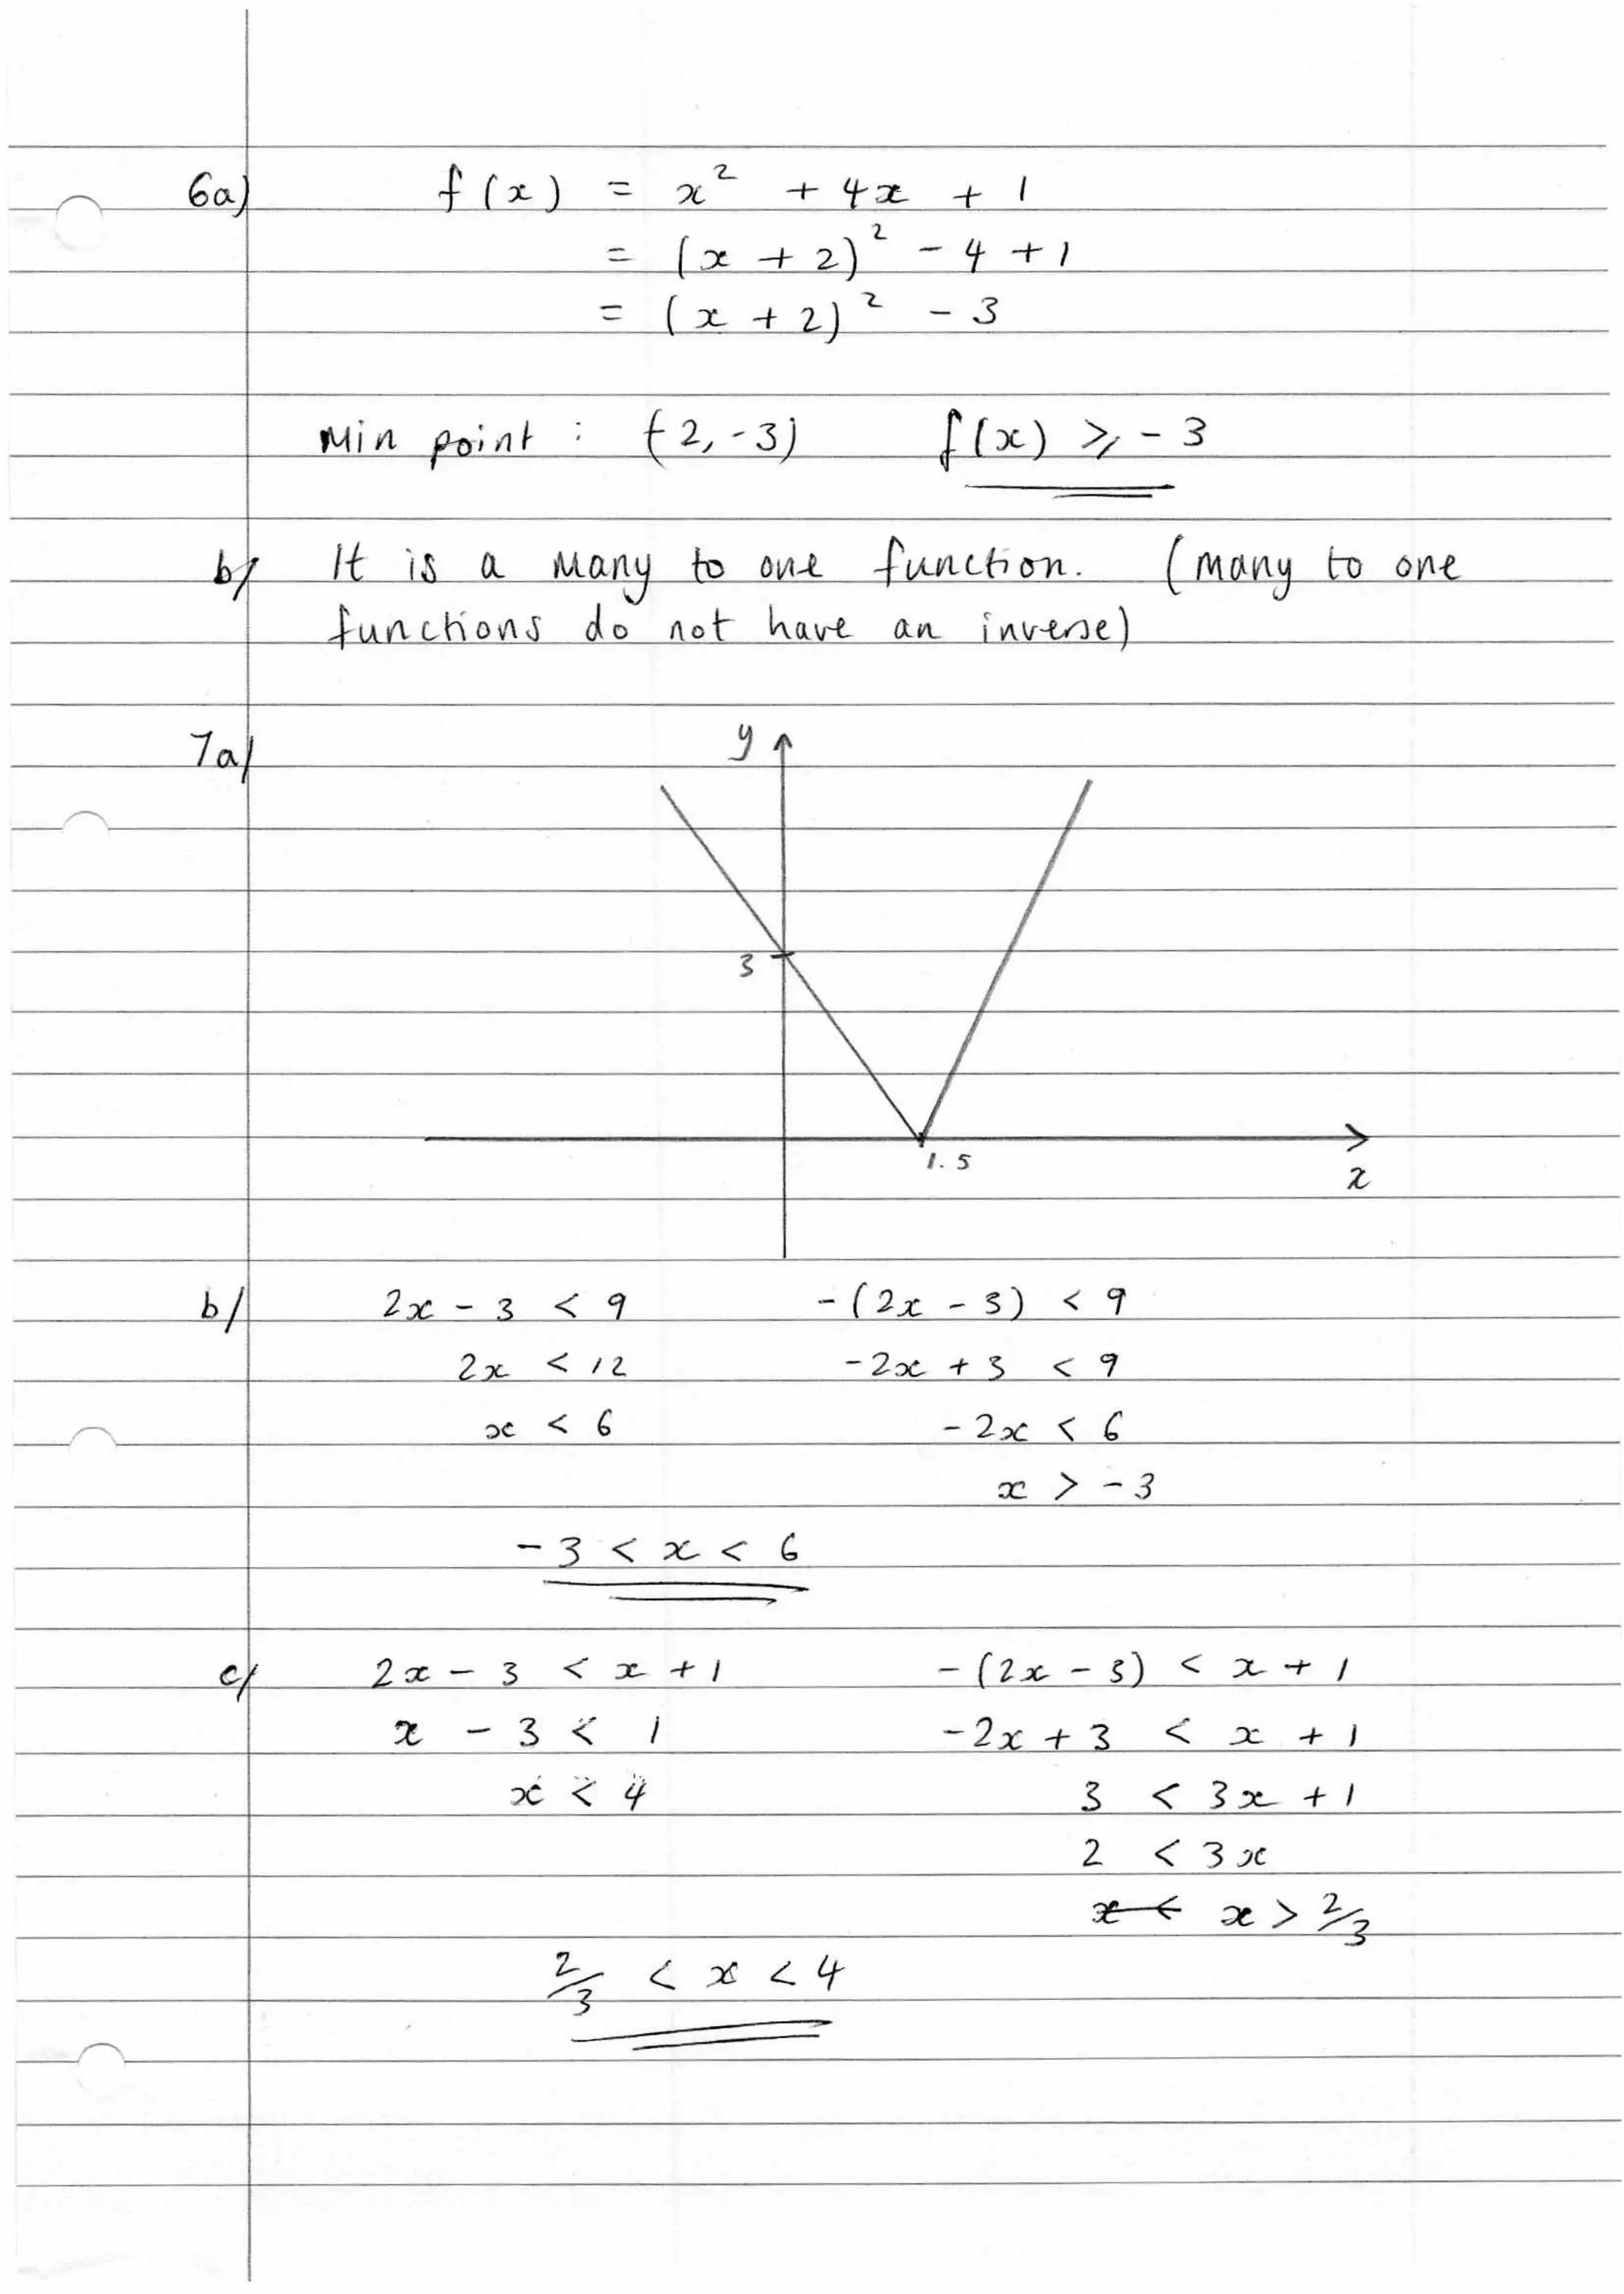 6a) f(x) = x² + 4x + 1
= (x + 2)² - 4 + 1
= (x + 2)² - 3
Min point : (-2, -3) f(x) ⩾ -3
b/ It is a many to one function. (many to one
functions do not have an inverse)
7a/ y
3
1.5
x
b/ 2x - 3 < 9 -(2x - 3) < 9
2x < 12 -2x + 3 < 9
x < 6 -2x < 6
x > -3
-3 < x < 6
c/ 2x - 3 < x + 1 -(2x - 3) < x + 1
x - 3 < 1 -2x + 3 < x + 1
x < 4 3 < 3x + 1
2 < 3x
x < x > 2/3
2/3 < x < 4